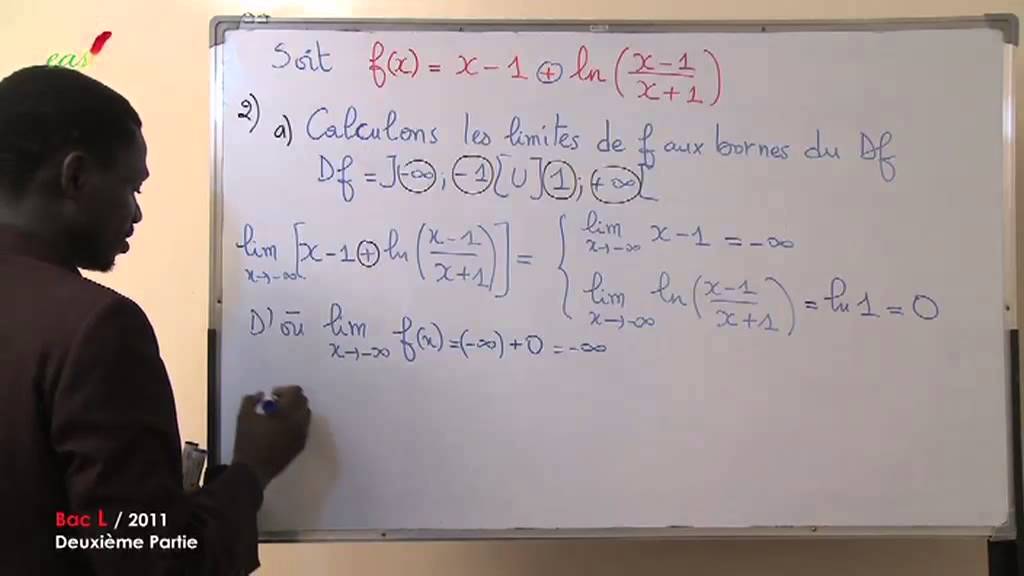 eas
Soit f(x) = x - 1 + ln(x-1/x+1)
2) a) Calculons les limites de f aux bornes du Df
Df = ]-∞ ; -1[ U ]1 ; +∞[
lim x→-∞ [x - 1 + ln(x-1/x+1)] = { lim x→-∞ x - 1 = -∞
lim x→-∞ ln(x-1/x+1) = ln 1 = 0
D'où lim x→-∞ f(x) = (-∞) + 0 = -∞
Bac L / 2011
Deuxième Partie